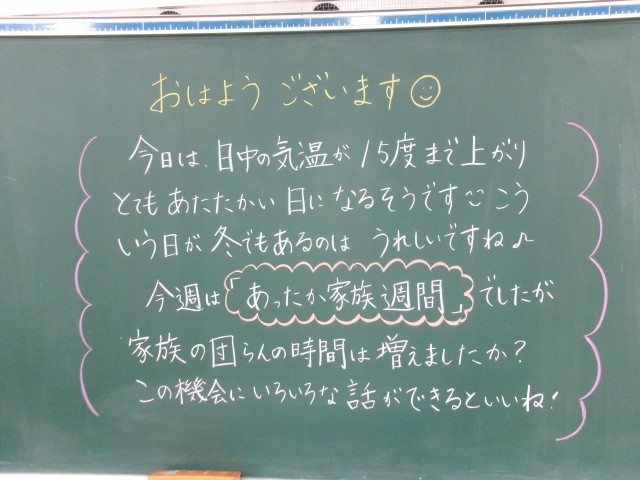 おはようございます☺
今日は、日中の気温が15度まで上がり
とてもあたたかい日になるそうです☺こう
いう日が冬でもあるのは うれしいですね♪
今週は「あったか家族週間」でしたが
家族の団らんの時間は増えましたか?
この機会にいろいろな話ができるといいね!